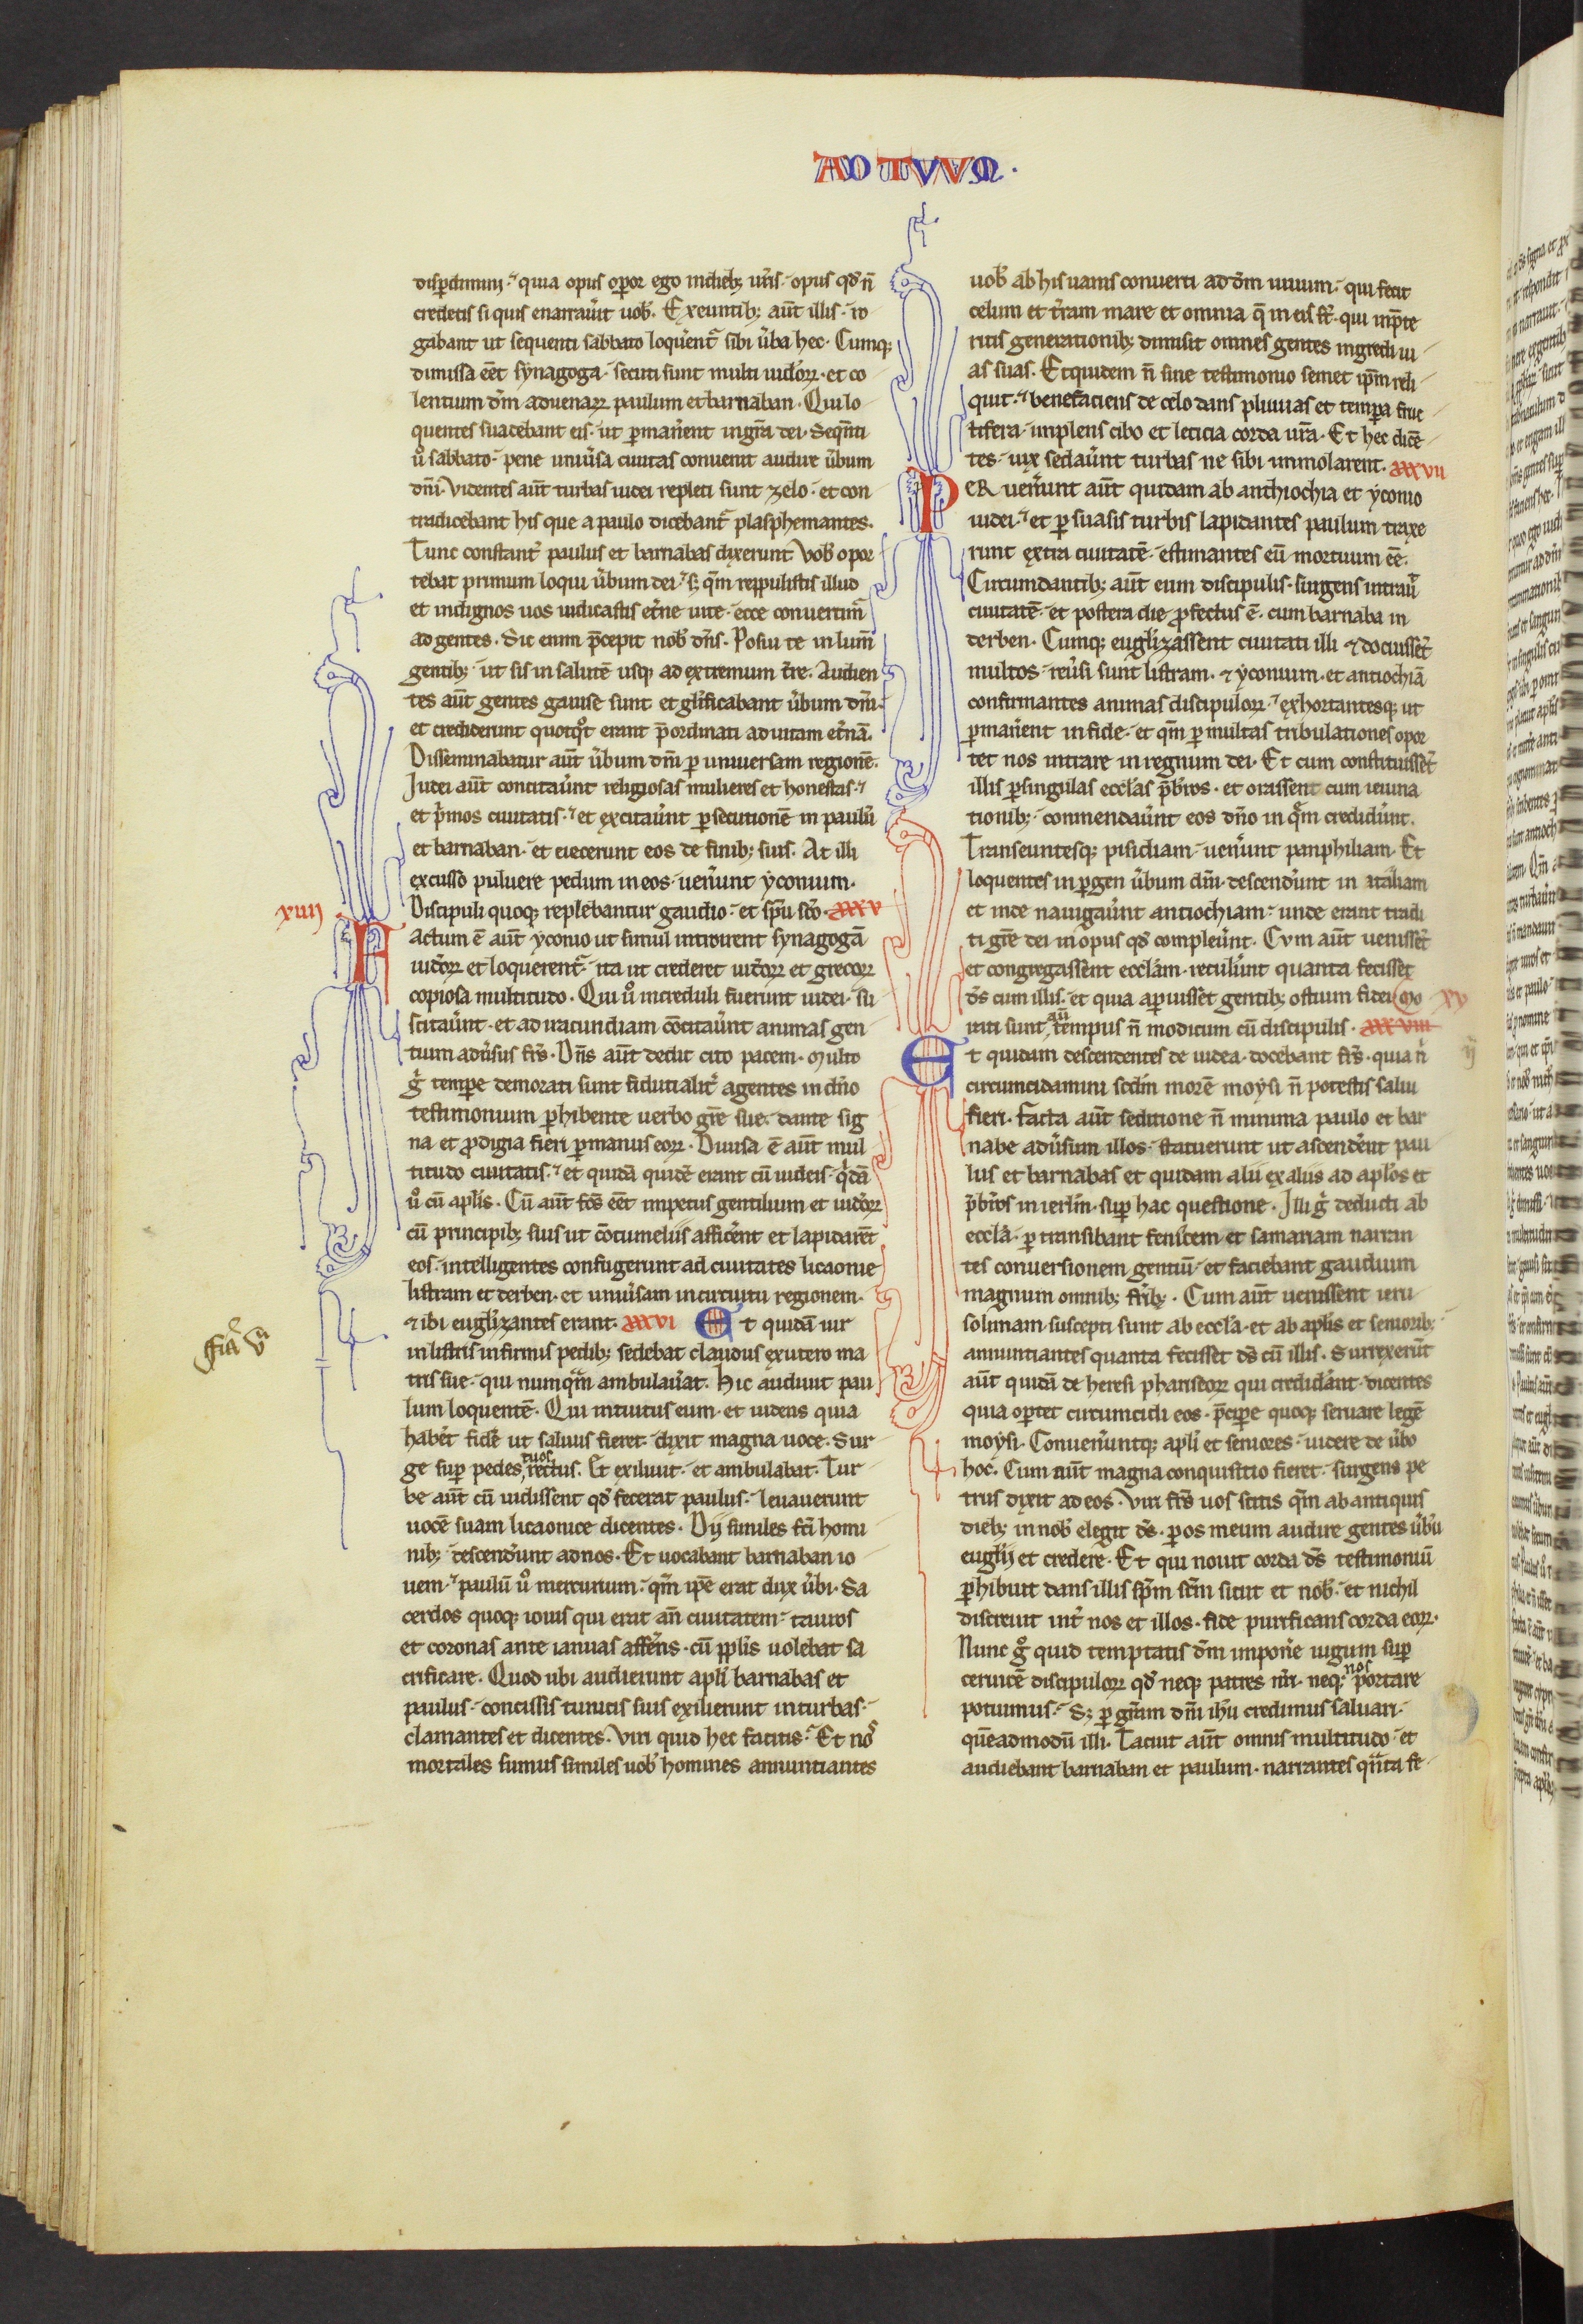 ACTVVM.
disperdimini. quia opus operor ego in dieb; uris. opus qd n̄
credetis si quis enarrauit uob. Exeuntib; aut̄ illis. ro
gabant ut sequenti sabbato loquerent sibi uba hec. Cumq;
dimissa eēt synagoga. secuti sunt multi iudoꝝ. et co
lentium dm̄ aduenaꝝ paulum et barnaban. Qui lo
quentes suadebant eis. ut ꝑmanerent in gr̄a dei. Sequēti
ů sabbato. pene uniu̾sa ciuitas conuenit audire u̾bum
dn̄i. Videntes aut̄ turbas iudei repleti sunt zelo. et con
tradicebant his que a paulo dicebant̄ plasphemantes.
Tunc constant̾ paulus et barnabas dixerunt. Vob opor
tebat primum loqui u̾bum dei. s; qm̄ reppulistis illud
et indignos uos iudicastis et̾ne uite. ecce conuertim̾
ad gentes. Sic enim p̄cepit nob dn̄s. Posui te in lum̄
gentib; ut sis in salutē usq; ad extremum tr̄e. Audien
tes aut̄ gentes gauise sunt et glificabant u̾bum dn̄i.
et crediderunt quotqt̾ erant p̄ordinati ad uitam et̾nā.
Disseminabatur aut̄ u̾bum dn̄i ꝑ uniuersam regionē.
Iudei aut̄ concitau̾unt religiosas mulieres et honestas.
et p̾mos ciuitatis. et excitau̾unt ꝑsecutionē in paulū
et barnaban. et eiecerunt eos de finib; suis. At illi
excusso puluere pedum in eos. uen̾unt yconium.
Discipuli quoq; replebantur gaudio. et sp̄u sc̄o. xxxv
xiiij
Factum ē aut̄ yconio ut simul introirent synagogā
iudoꝝ et loquerent̾. ita ut crederet iudoꝝ et grecoꝝ
copiosa multitudo. Qui ů increduli fuerunt iudei. su
scitau̾nt. et ad iracundiam cōcitau̾unt animas gen
tium adu̾sus fr̄s. Dn̄s aut̄ dedit cito pacem. Multo
g̊ tempe demorati sunt fidutialit̾ agentes in dn̄o
testimonium ꝑhibente uerbo gr̄e sue. dante sig
na et prodigia fieri ꝑ manus eoꝝ. Diuisa ē aut̄ mul
titudo ciuitatis. et quidā quidē erant cū iudeis. q̾dā
ů cū aplis. Cū aut̄ fcs eēt impetus gentilium et iudoꝝ
cū principib; suis ut cōtumeliis afficerent et lapidarēt
eos. intelligentes confugerunt ad ciuitates licaonie
listram et derben. et uniu̾sam in circuitu regionem.
⁊ ibi euglizantes erant. xxxvi Et quidā uir
in listris infirmis pedib; sedebat claudus ex utero ma
tris sue. qui numqm̄ ambulau̾at. Hic audiuit pau
lum loquentē. Qui intuitus eum. et uidens quia
haberet fidē ut saluus fieret. dixit magna uoce. Sur
ge sup pedes tuos rectus. Et exiliuit. et ambulabat. Tur
be aut̄ cū uidissent qd fecerat paulus. leuauerunt
uocē suam licaonice dicentes. Dij similes fc̄i homi
nib; descend̾unt ad nos. Et uocabant barnaban io
uem. paulū ů mercurium. qm̄ ipe erat dux u̾bi. Sa
cerdos quoq; iouis qui erat an̄ ciuitatem. tauros
et coronas ante ianuas affe̾ns. cū pplis uolebat sa
crificare. Quod ubi audierunt apli barnabas et
paulus. concissis tunicis suis exilierunt in turbas.
clamantes et dicentes. Viri quid hec facitis. Et nos
mortales sumus similes uob homines annuntiantes
uob ab his uanis conuerti ad dm̄ uiuum. qui fecit
celum et tr̄am mare et omnia q̄ in eis st̄. qui inp̄te
ritis generationib; dimisit omnes gentes ingredi ui
as suas. Et quidem n̄ sine testimonio semet ipm̄ reli
quit. benefaciens de celo dans pluuias et tempa fruc
tifera. implens cibo et leticia corda ur̄a. Et hec dicē
tes. uix sedau̾unt turbas ne sibi immolarent. xxxvii
PER uen̾unt aut̄ quidam ab anthiochia et yconio
iudei. et ꝑsuasis turbis lapidantes paulum traxe
runt extra ciuitatē. estimantes eū mortuum eē.
Circumdantib; aut̄ eum discipulis. surgens intrau̾
ciuitatē. et postera die profectus ē cum barnaba in
derben. Cumq; euglizassent ciuitati illi ⁊ docuissēt
multos. reu̾si sunt listram. ⁊ yconium. et antiochiā
confirmantes animas discipuloꝝ. exhortantesq; ut
ꝑmanerent in fide. et qm̄ ꝑ multas tribulationes opor
tet nos intrare in regnum dei. Et cum constituissēt
illis ꝑ singulas ecclas p̄bros. et orassent cum ieiuna
tionib; commendau̾unt eos dn̄o in q̄m credid̾unt.
Transeuntesq; pisidiam. uen̾unt panphiliam. Et
loquentes in ꝑgen u̾bum dn̄i. descend̾unt in italiam
et inde nauigau̾unt antiochiam. unde erant tradi
ti gr̄e dei in opus qd compleu̾unt. Cvm aut̄ uenissēt
et congregassent ecclam. retul̾unt quanta fecisset
ds̄ cum illis. et quia aperuisset gentib; ostium fidei. Mo xv
rati sunt aū tempus n̄ modicum cū discipulis. xxxviii
Et quidam descendentes de iudea. docebant fr̄s. quia n̄
circumcidamini scdm̄ morē moysi n̄ potestis salui
fieri. Facta aut̄ seditione n̄ minima paulo et bar
nabe adu̾sum illos. statuerunt ut ascenderent pau
lus et barnabas et quidam alii ex aliis ad aplos et
p̄bros in ierlm̄. sup hac questione. Illi g̊ deducti ab
eccla. ꝑtransibant fenicem et samariam narran
tes conuersionem gentiū. et faciebant gaudium
magnum omnib; frib;. Cum aut̄ uenissent ieru
solimam. suscepti sunt ab eccla. et ab aplis et seniorib;
annuntiantes quanta fecisset ds̄ cū illis. Surrexerūt
aut̄ quidā de heresi phariseoꝝ qui crediderant. dicentes
quia oportet circumcidi eos. p̄cipere quoq; seruare legē
moysi. Conuen̾untq; apli et seniores. uidere de u̾bo
hoc. Cum aut̄ magna conquisitio fieret. surgens pe
trus dixit ad eos. Viri fr̄s uos scitis qm̄ ab antiquis
dieb; in nob elegit ds̄. ꝑ os meum audire gentes u̾bū
euglij et credere. Et qui nouit corda ds̄ testimoniū
ꝑhibuit dans illis spm̄ scm̄ sicut et nob. et nichil
discreuit int̾ nos et illos. fide purificans corda eoꝝ.
Nunc g̊ quid temptatis dm̄ imponere iugum sup
ceruicē discipuloꝝ qd neq; patres nr̄i. neq; nos portare
potuimus. S; ꝑ gr̄am dn̄i ihu credimus saluari.
quēadmodū illi. Tacuit aut̄ omnis multitudo. et
audiebant barnaban et paulum. narrantes qn̄ta fe